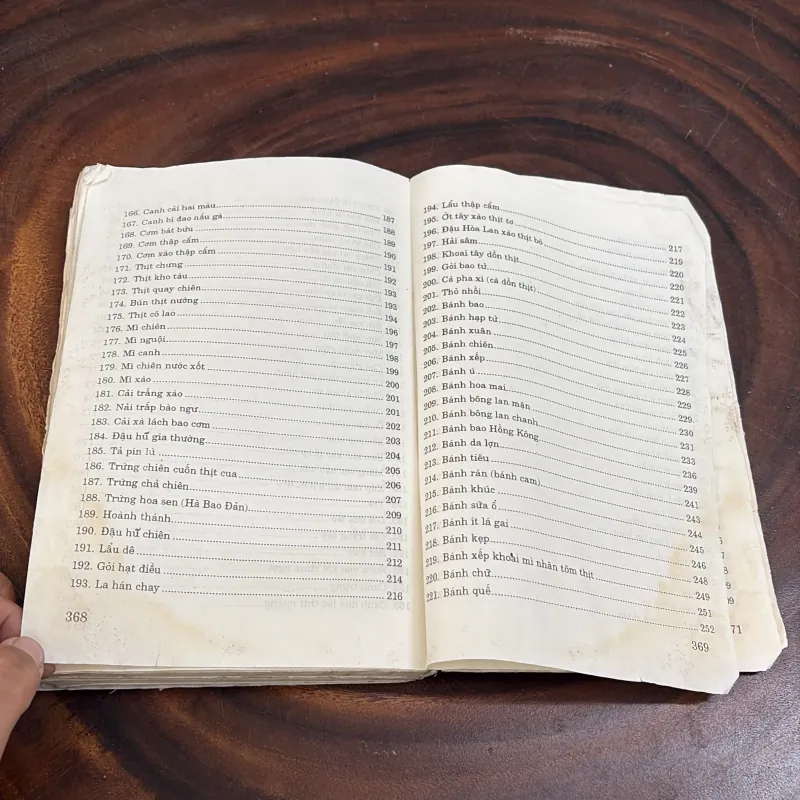 166. Canh cải hai màu..........187
167. Canh bí đao nấu gà..........188
168. Cơm bát bửu..........189
169. Cơm thập cẩm..........190
170. Cơm xào thập cẩm..........191
171. Thịt chưng..........192
172. Thịt kho tàu..........193
173. Thịt quay chiên..........193
174. Bún thịt nướng..........194
175. Thịt cô lao..........196
176. Mì chiên..........197
177. Mì nguội..........198
178. Mì canh..........199
179. Mì chiên nước xốt..........200
180. Mì xào..........201
181. Cải trắng xào..........201
182. Nải trắp bào ngư..........202
183. Cải xà lách bao cơm..........203
184. Đậu hũ gia thường..........204
185. Tả pín lù..........205
186. Trứng chiên cuốn thịt cua..........206
187. Trứng chả chiên..........207
188. Trứng hoa sen (Hà Bao Đản)..........209
189. Hoành thánh..........210
190. Đậu hũ chiên..........211
191. Lẩu dê..........212
192. Gỏi hạt điều..........214
193. La hán chay..........216
368
194. Lẩu thập cẩm..........217
195. Ớt tây xào thịt tơ..........219
196. Đậu Hòa Lan xào thịt bò..........220
197. Hải sâm..........220
198. Khoai tây dồn thịt..........221
199. Gỏi bao tử..........222
200. Cà pha xi (cà dồn thịt)..........223
201. Thỏ nhồi..........224
202. Bánh bao..........225
203. Bánh hạp tử..........226
204. Bánh xuân..........227
205. Bánh chiên..........228
206. Bánh xếp..........229
207. Bánh ú..........229
208. Bánh hoa mai..........230
209. Bánh bông lan mặn..........231
210. Bánh bông lan chanh..........233
211. Bánh bao Hồng Kông..........236
212. Bánh da lợn..........239
213. Bánh tiêu..........241
214. Bánh rán (bánh cam)..........243
215. Bánh khúc..........244
216. Bánh sữa ổ..........245
217. Bánh ít lá gai..........246
218. Bánh kẹp..........248
219. Bánh xếp khoai mì nhân tôm thịt..........249
220. Bánh chữ..........251
221. Bánh quế..........252
369
71